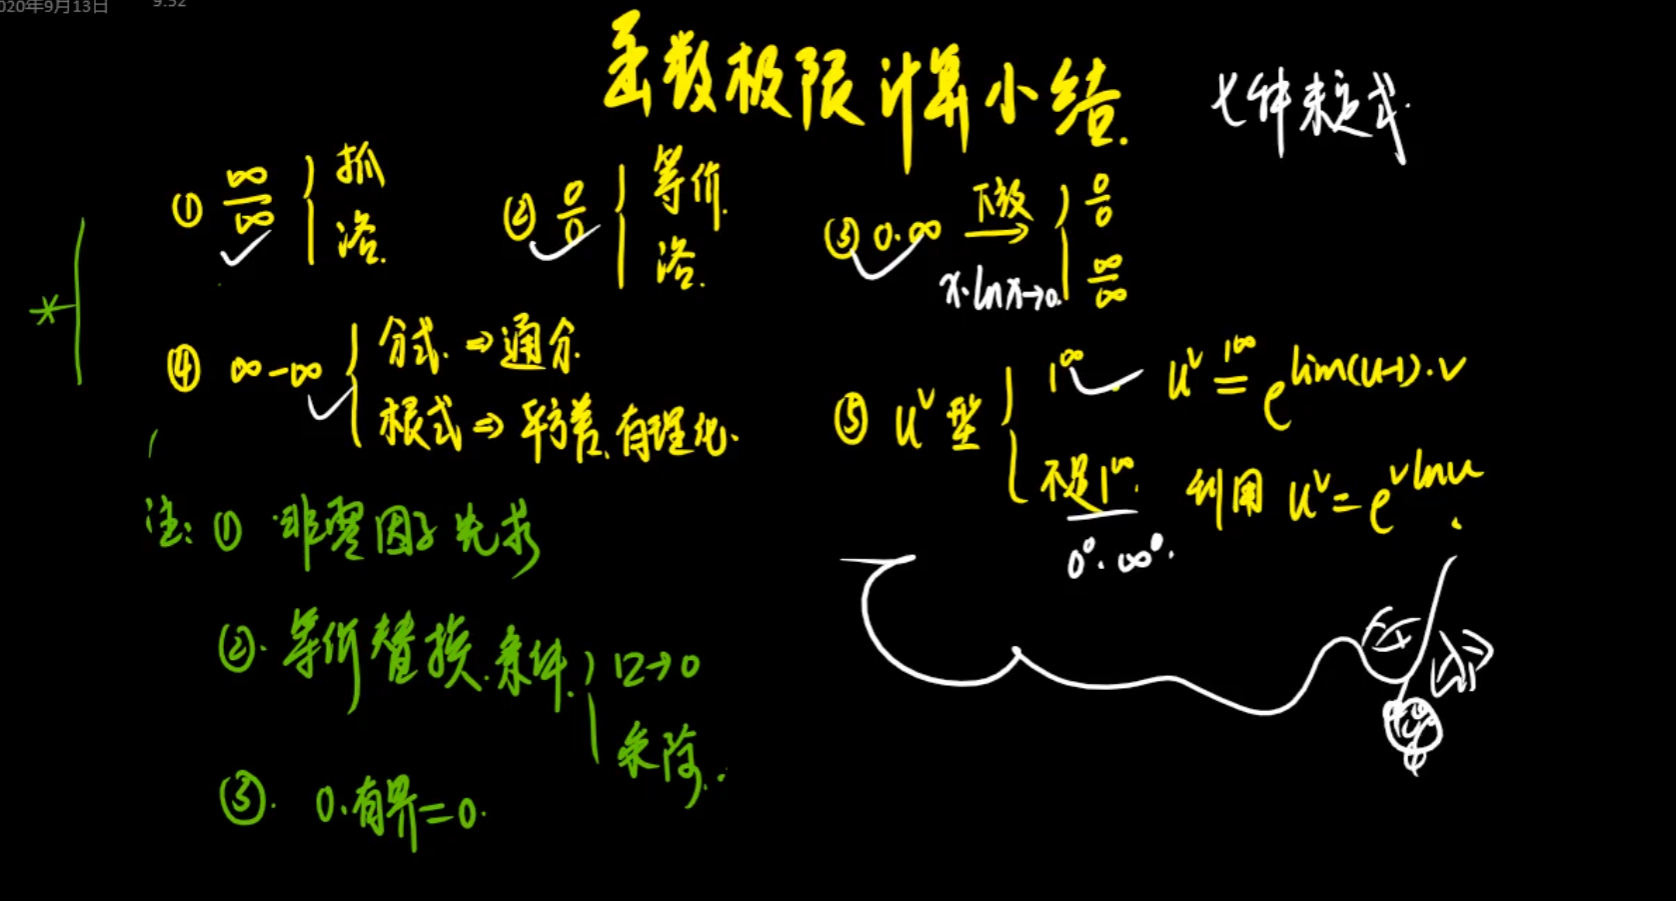 2020年9月13日 9:52
函数极限计算小结.
七种未定式.
① ∞/∞ { 抓
洛.
② 0/0 { 等价.
洛.
③ 0·∞ 下放→ { 0/0
∞/∞
x·lnx→0.
④ ∞-∞ { 分式. ⇒ 通分.
根式 ⇒ 平方差、有理化.
⑤ u^v 型 { 1^∞. u^v =(1^∞) e^{lim(u-1)·v}
不是1^∞. 利用 u^v = e^{vlnu}.
0^0. ∞^0.
注: ① 非零因子先求
②. 等价替换.条件. {
→0
乘除.
③. 0·有界=0.